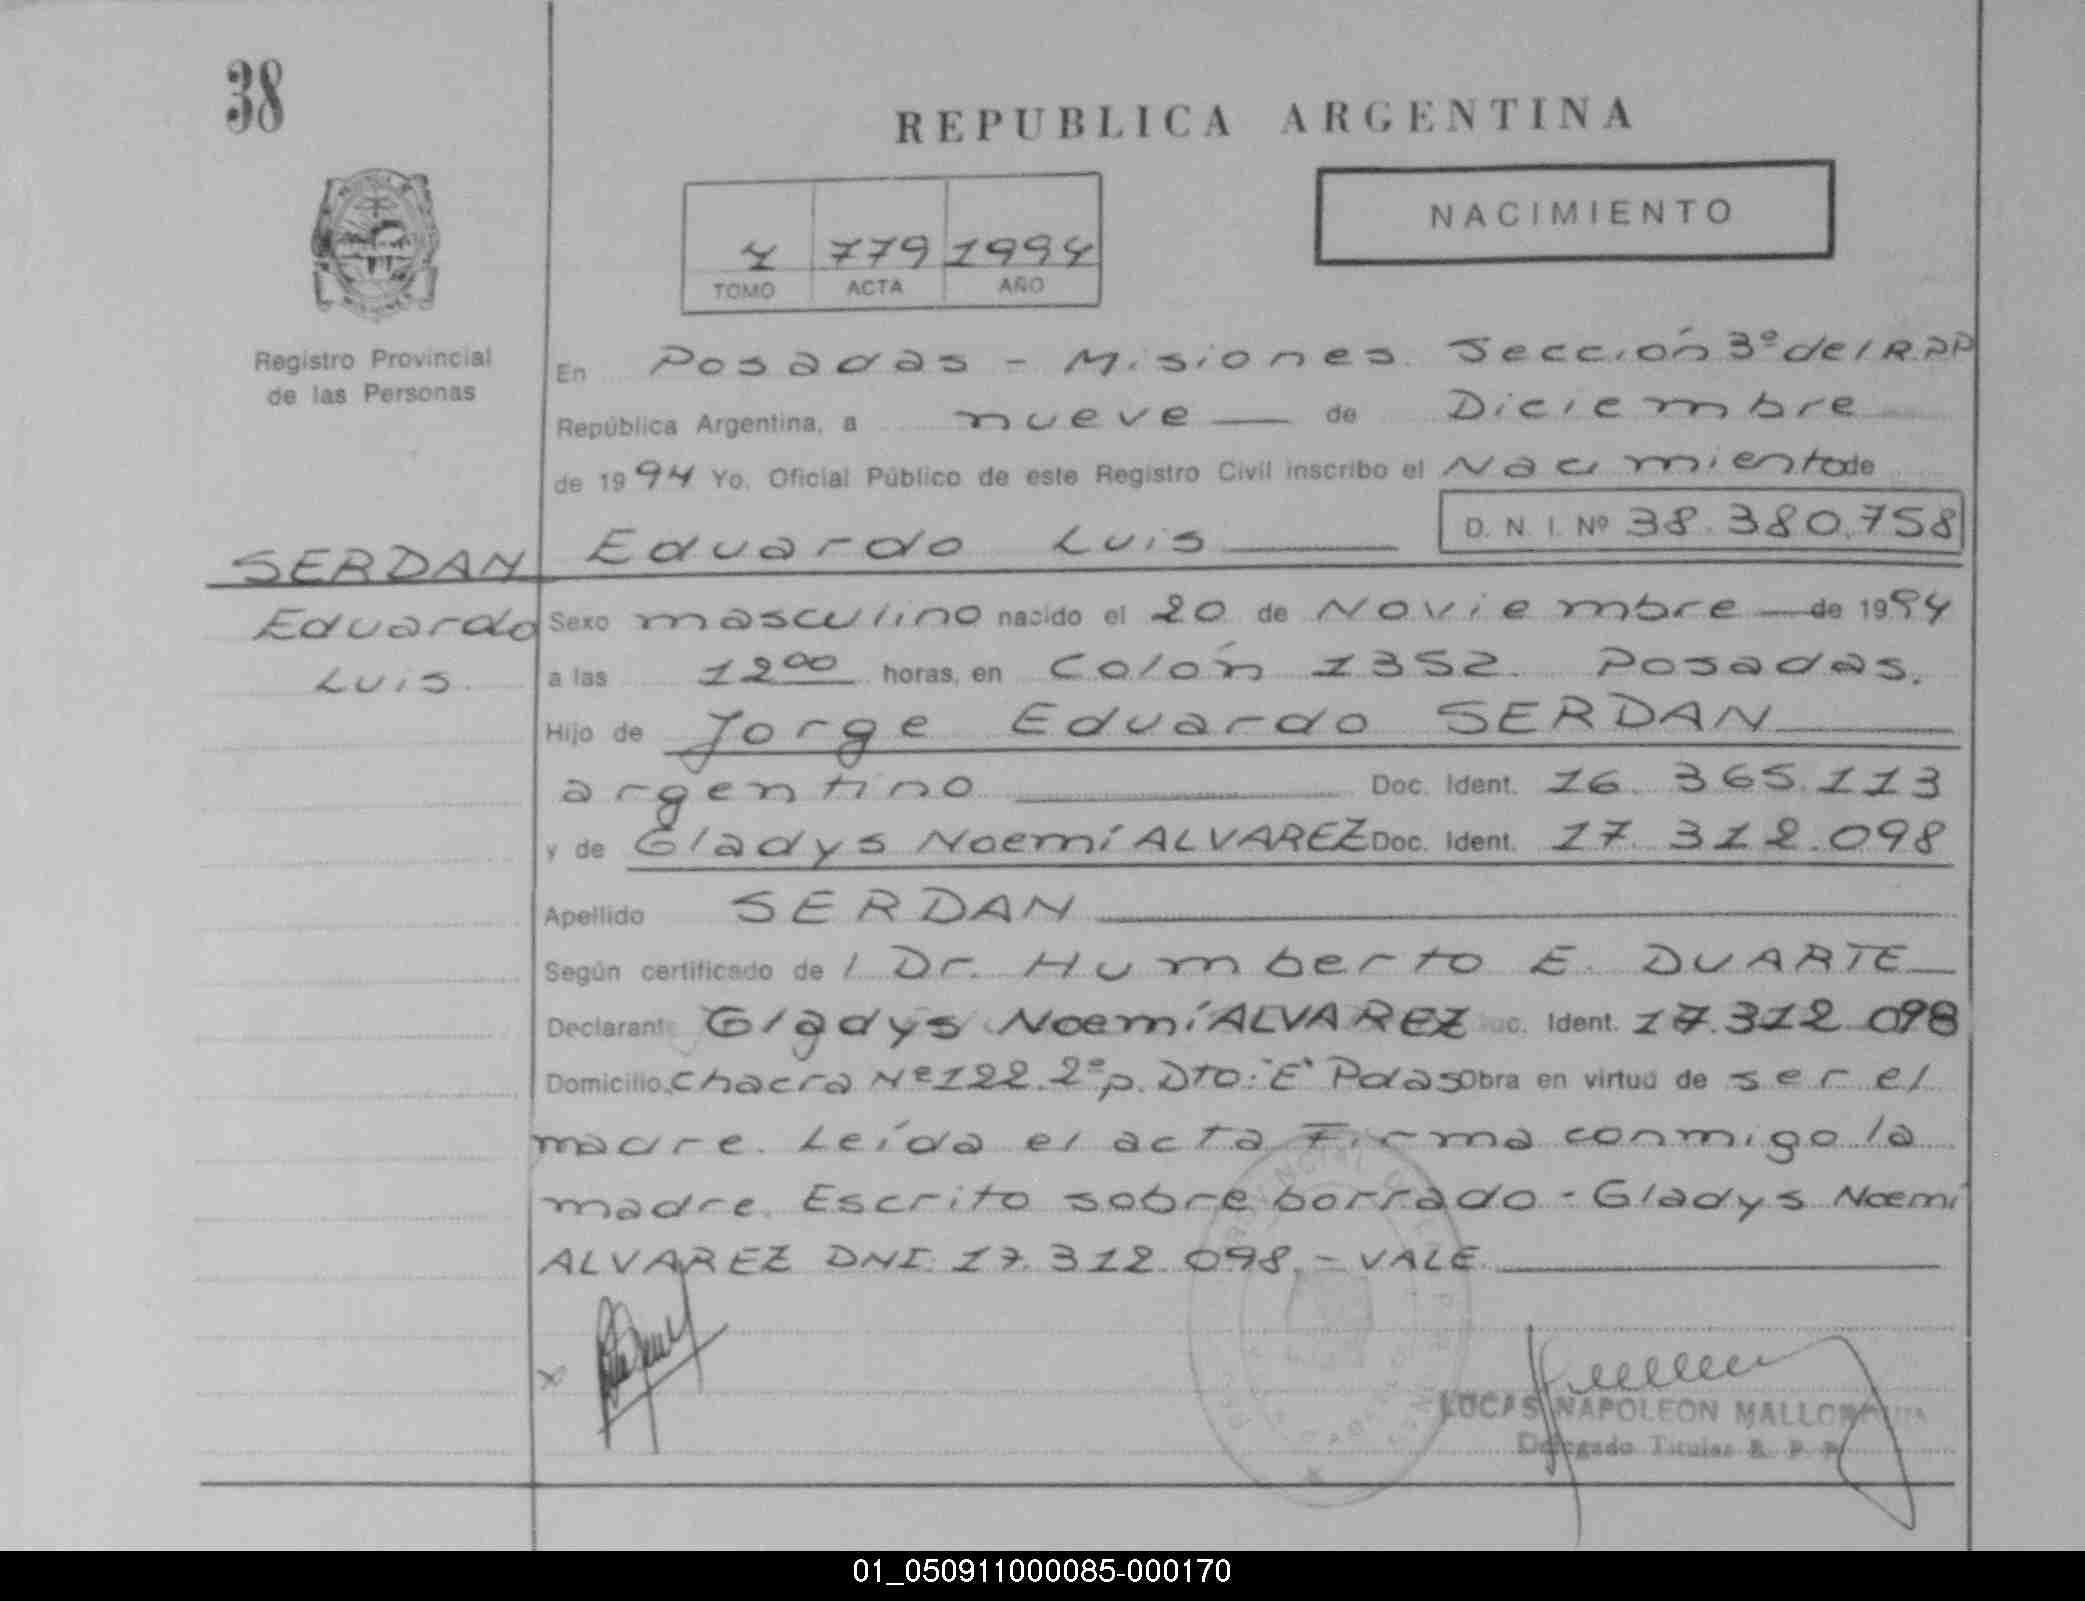 38
REPUBLICA ARGENTINA
NACIMIENTO
779 1994
TOMO ACTA AÑO
Registro Provincial
de las Personas
En Posadas - Misiones. Sección 3º del R.PP
República Argentina, a nueve de Diciembre
de 1994 Yo, Oficial Público de este Registro Civil inscribo el Nacimiento de
D. N. I. Nº 38.380.758
SERDAN Eduardo Luis
Eduardo
Luis.
Sexo masculino nacido el 20 de Noviembre de 1994
a las 12 00 horas, en Colón 1352. Posadas.
Hijo de Jorge Eduardo SERDAN
argentino Doc. Ident. 16.365.113
y de Gladys Noemí ALVAREZ Doc. Ident. 17.312.098
Apellido SERDAN
Según certificado de l Dr. Humberto E. DUARTE
Declarante Gladys Noemí ALVAREZ Doc. Ident. 17.312.098
Domicilio Chacra Nº 122. 2º p. Dto: "E" Pdas Obra en virtud de ser el
madre. Leída el acta Firma conmigo la
madre. Escrito sobre borrado - Gladys Noemí
ALVAREZ DNI. 17.312.098. - VALE.
x
LUCAS NAPOLEON
Delegado Titular R. P. P.
01_050911000085-000170